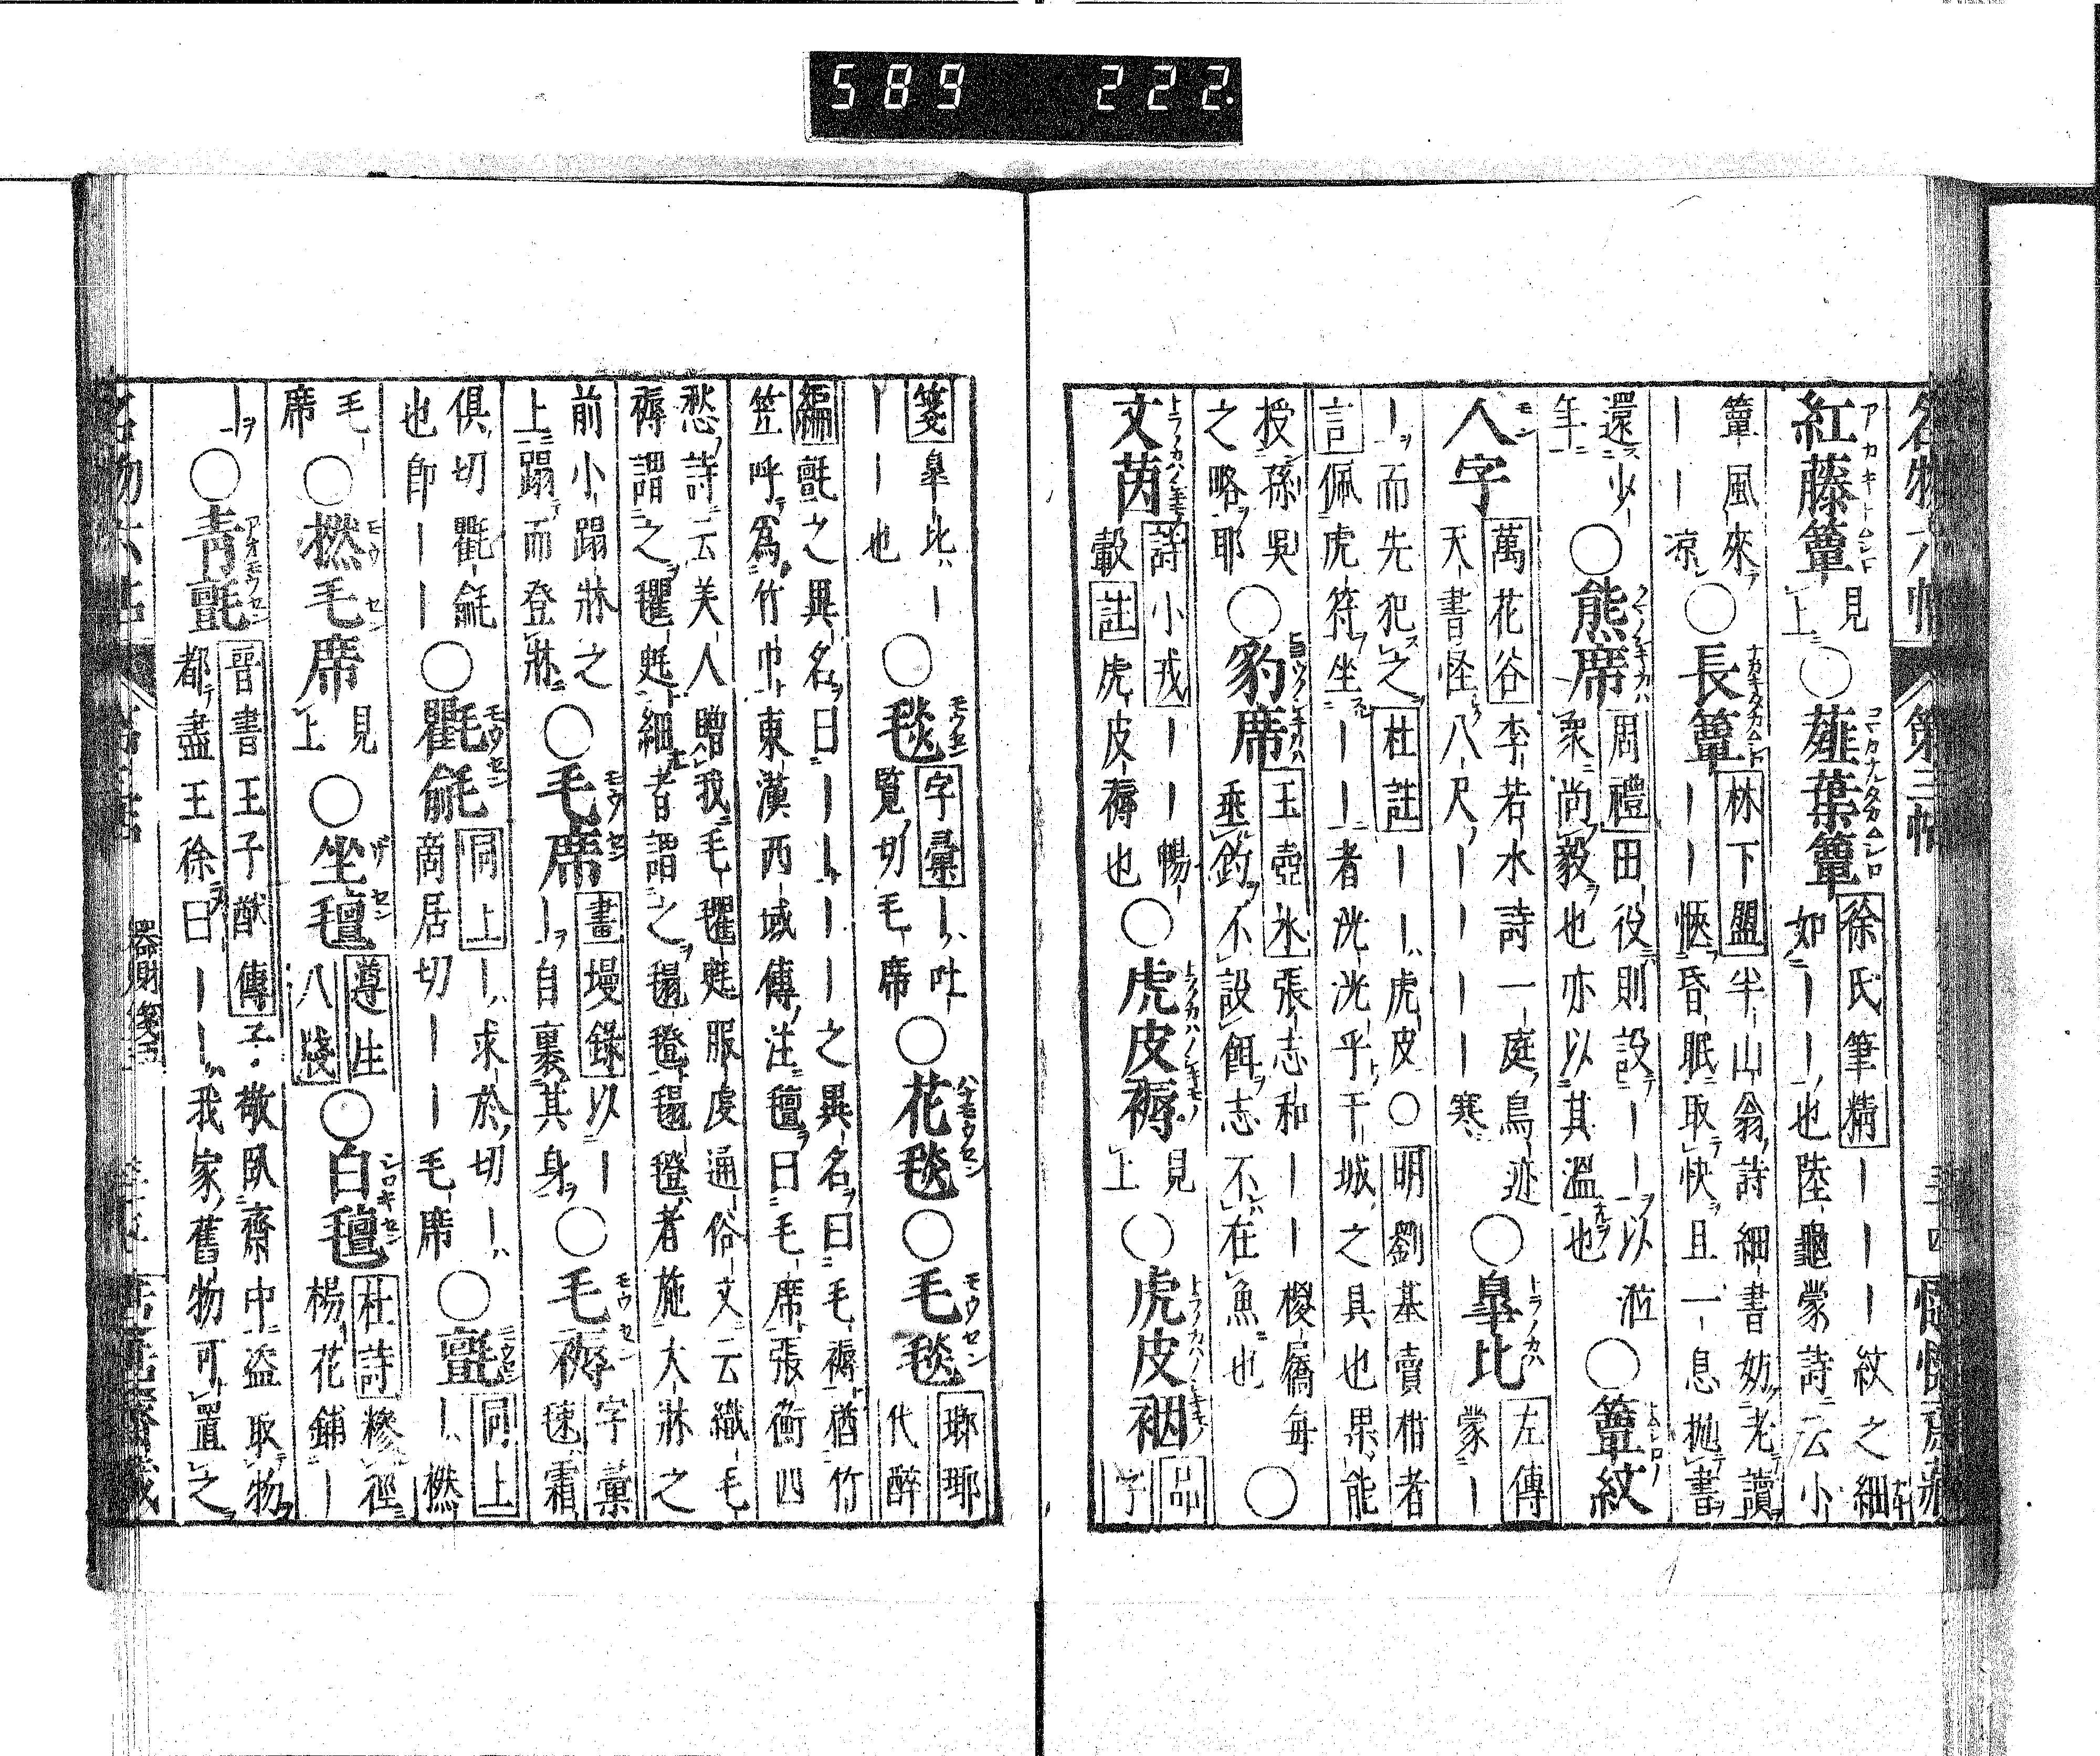 589 222
名物六帖 第三帖
紅藤簟 見上 ○ 薤葉簟 徐氏筆精 ーーー紋之細如ーーー也陸龜蒙詩云小
簟風來ーーー凉 ○ 長簟 林下盟 半山翁詩細書妨老讀ーー愜昏眠取快且一息抛書
還少年 ○ 熊席 周禮 田役則設ーー以涖衆尚毅也亦以其溫也 ○ 簟紋
人字 萬花谷 李若水詩一庭鳥迹天書怪八尺ーーーー寒 ○ 皐比 左傳 蒙ー
ー而先犯之 杜註 ーー虎皮 ○ 明劉基賣柑者言 佩虎符坐ーー者洸洸乎干城之具也果能
授孫吳之略耶 ○ 豹席 玉壺氷 張志和ーー椶屩每垂釣不設餌志不在魚也 ○
文茵 詩小戎 ーー暢轂 註 虎皮褥也 ○ 虎皮褥 見上 ○ 虎皮裀 品字
箋 皐比ーーー也 ○ 毯 字彙 ー吐覽切毛席 ○ 花毯 ○ 毛毯 瑯瑘代醉
編 氈之異名曰ーーーーー之異名曰毛褥猶竹笠呼爲竹巾東漢西域傳注氊曰毛席張衡四
愁詩云美人贈我毛氍毹服虔通俗文云織毛褥謂之氍毹細者謂之毾㲪毾㲪者施大牀之
前小蹋牀之上蹋而登牀 ○ 毛席 畫墁録 以ーー自裹其身 ○ 毛褥 字彙
俱切氍毹也卽ーー ○ 氍毹 同上 ー求於切ー啇居切ーー毛席 ○ 氈 同上 ー撚
毛席 ○ 撚毛席 見上 ○ 坐氊 遵生八牋 ○ 白氊 杜詩 糝徑楊花鋪ー
ー ○ 靑氈 晉書王子猷傳 子敬臥齋中盜取物都盡王徐曰ーーー我家舊物可置之
器財箋